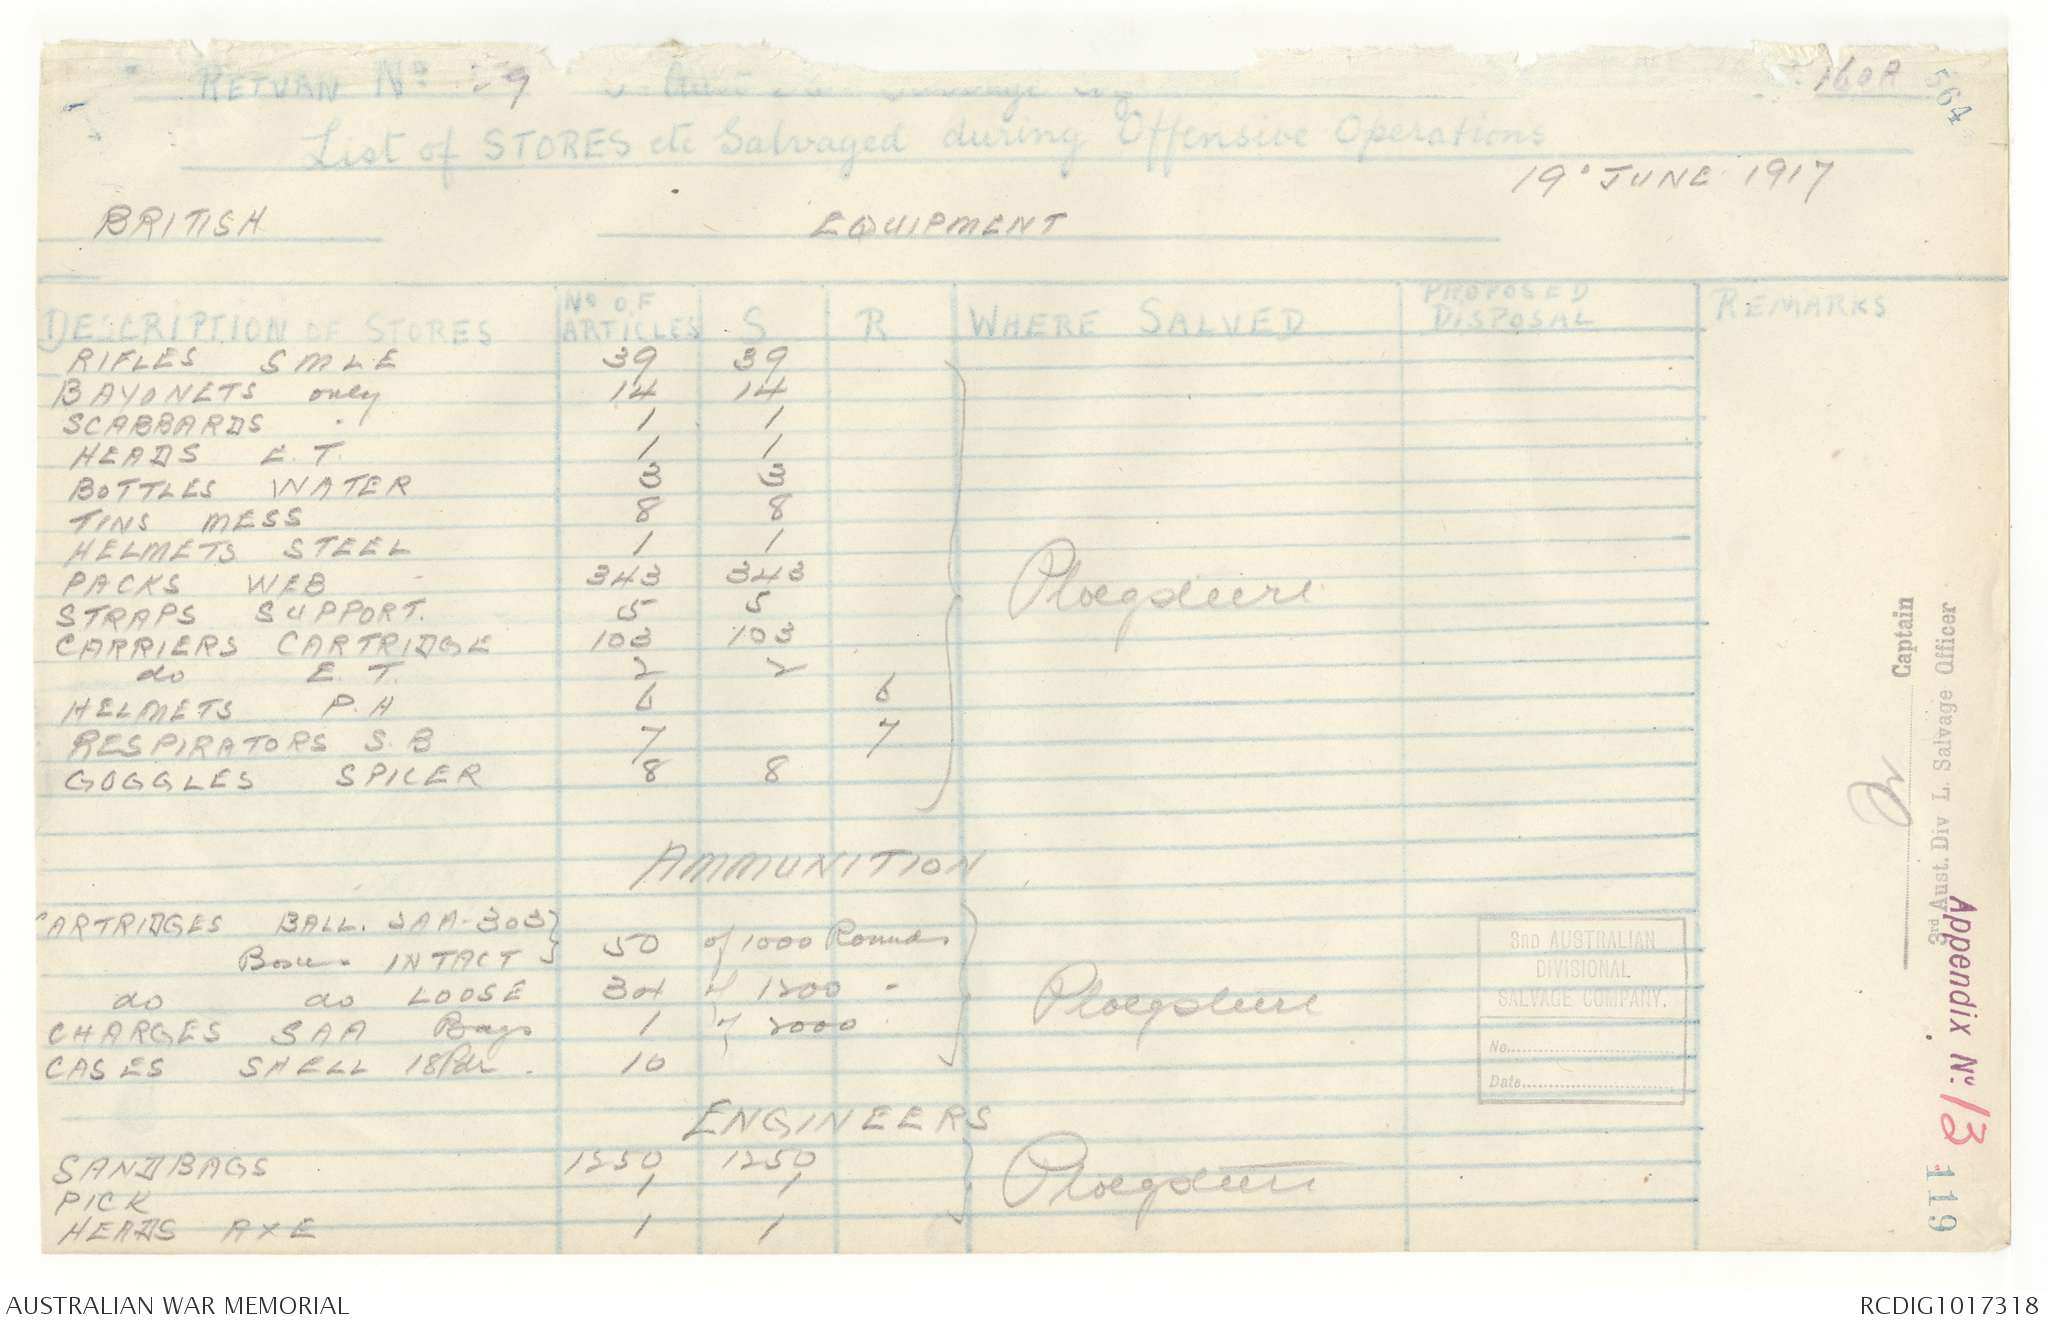 RETURN No 9
160A
564
List of STORES etc Salvaged during Offensive Operations
19. JUNE 1917
BRITISH EQUIPMENT
DESCRIPTION OF STORES No OF ARTICLES S R WHERE SALVED PROPOSED DISPOSAL REMARKS
RIFLES SMLE 39 39
BAYONETS only 14 14
SCABBARDS " 1 1
HEADS E.T. 1 1
BOTTLES WATER 3 3
TINS MESS 8 8
HELMETS STEEL 1 1
PACKS WEB 343 343
Ploegsteert
STRAPS SUPPORT. 5 5
CARRIERS CARTRIDGE 103 103
do E.T. 2 2
HELMETS P.H 6 6
RESPIRATORS S.B 7 7
GOGGLES SPICER 8 8
AMMUNITION
CARTRIDGES BALL. SAA-303
Boxes INTACT 50 of 1000 Rounds
do do LOOSE 34 of 1200 "
Ploegsteert
CHARGES SAA Bags 1 of 2000
CASES SHELL 18Pdr. 10
ENGINEERS
SANDBAGS 1250 1250
PICK 1 1
Ploegsteert
HEADS AXE 1 1
3ND AUSTRALIAN
DIVISIONAL
SALVAGE COMPANY.
No.
Date
Captain
3rd Aust. Div L. Salvage Officer
Appendix No. 13
119
AUSTRALIAN WAR MEMORIAL
RCDIG1017318